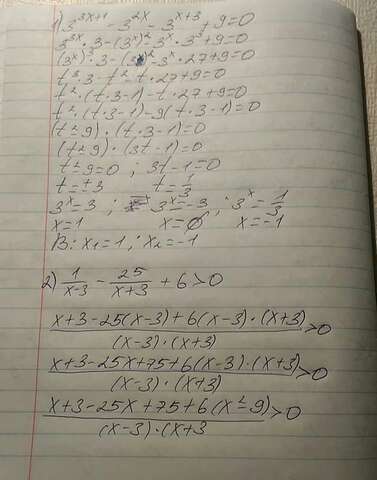 1) 3^{3x+1} - 3^{2x} - 3^{x+3} + 9=0
3^{3x}·3-(3^x)^2-3^x·3^3+9=0
(3^x)^3·3-(3^x)^2-3^x·27+9=0
t^3·3-t^2-t·27+9=0
t^2·(t·3-1)-t·27+9=0
t^2·(t·3-1)-9(t·3-1)=0
(t^2-9)·(t·3-1)=0
(t^2-9)·(3t-1)=0
t^2-9=0 ; 3t-1=0
t=±3 t=1/3
3^x=3 ; 3^x=-3 ; 3^x=1/3
x=1 x=∅ x=-1
В: x₁=1 ; x₂=-1
2) 1/(x-3) - 25/(x+3) + 6>0
(x+3-25(x-3)+6(x-3)·(x+3))/((x-3)·(x+3))>0
(x+3-25x+75+6(x-3)·(x+3))/((x-3)·(x+3))>0
(x+3-25x+75+6(x^2-9))/((x-3)·(x+3)>0